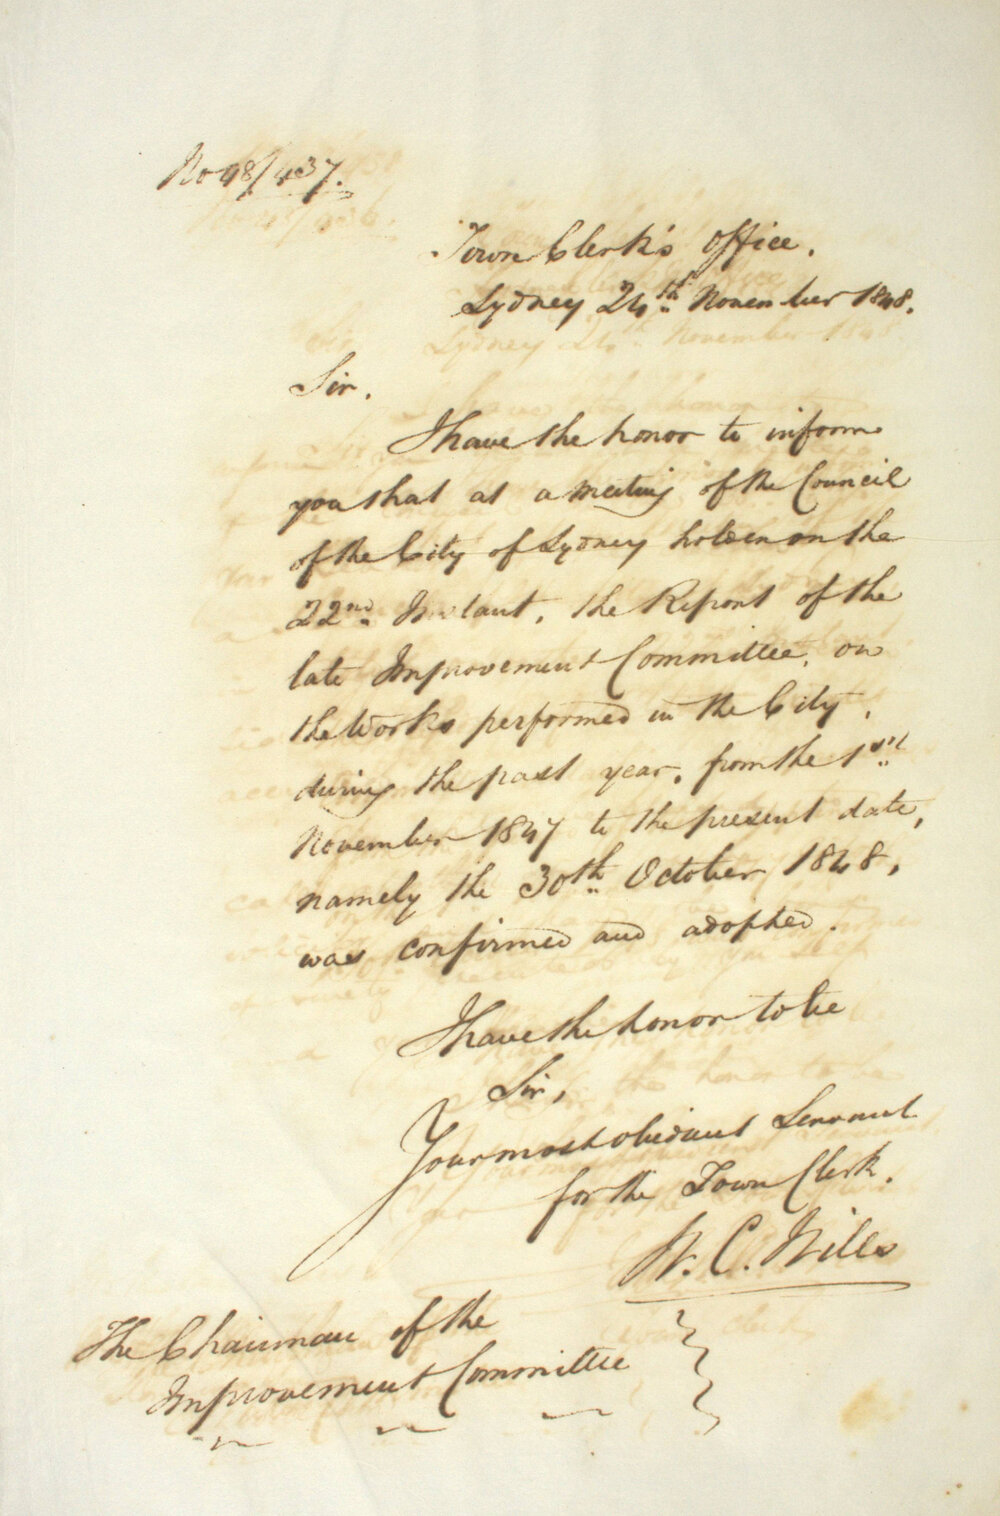 No 48/437.
Town Clerk's Office.
Sydney 24th November 1848.
Sir.
I have the honor to inform
you that at a meeting of the Council
of the City of Sydney holden on the
22nd Instant, the Report of the
late Improvement Committee, on
the Works performed in the City,
during the past year, from the 1st
November 1847 to the present date,
namely the 30th October 1848,
was confirmed and adopted.
I have the honor to be
Sir,
Your most obedient Servant
for the Town Clerk.
W. C. Wills
The Chairman of the
Improvement Committee